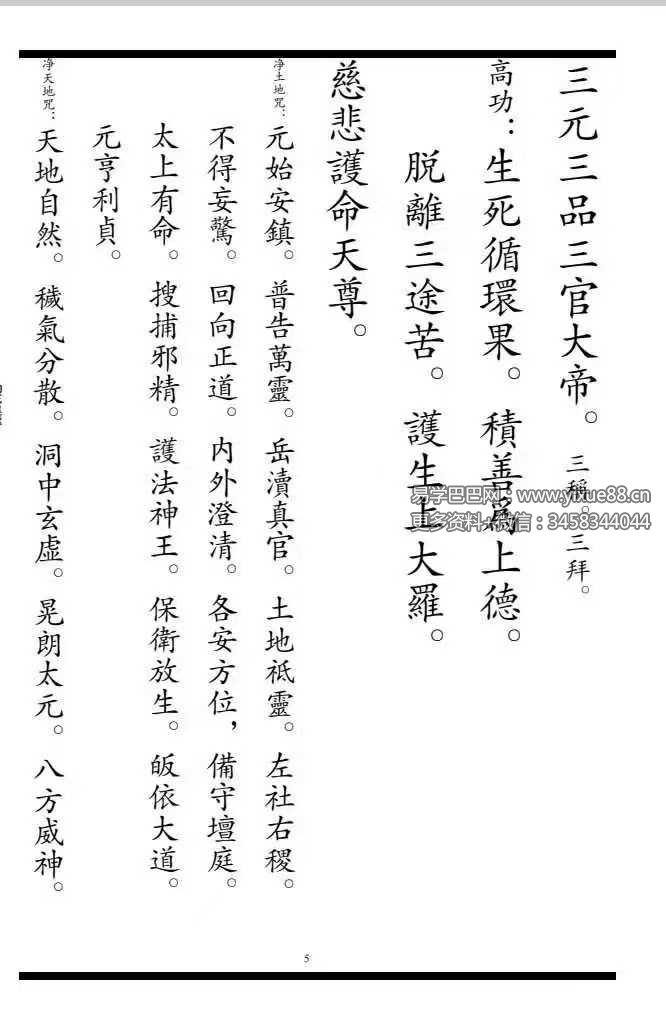 三元三品三官大帝。 三稱。三拜。
高功：生死循環果。 積善爲上德。
脱離三途苦。 護生上大羅。
慈悲護命天尊。
净土地咒：元始安鎮。 普告萬靈。 岳瀆真官。 土地祗靈。 左社右稷。
不得妄驚。 回向正道。 内外澄清。 各安方位， 備守壇庭。
太上有命。 搜捕邪精。 護法神王。 保衛放生。 皈依大道。
元亨利貞。
净天地咒：天地自然。 穢氣分散。 洞中玄虛。 晃朗太元。 八方威神。
易学巴巴网：www.yixue88.cn
更多资料+微信：3458344044
5